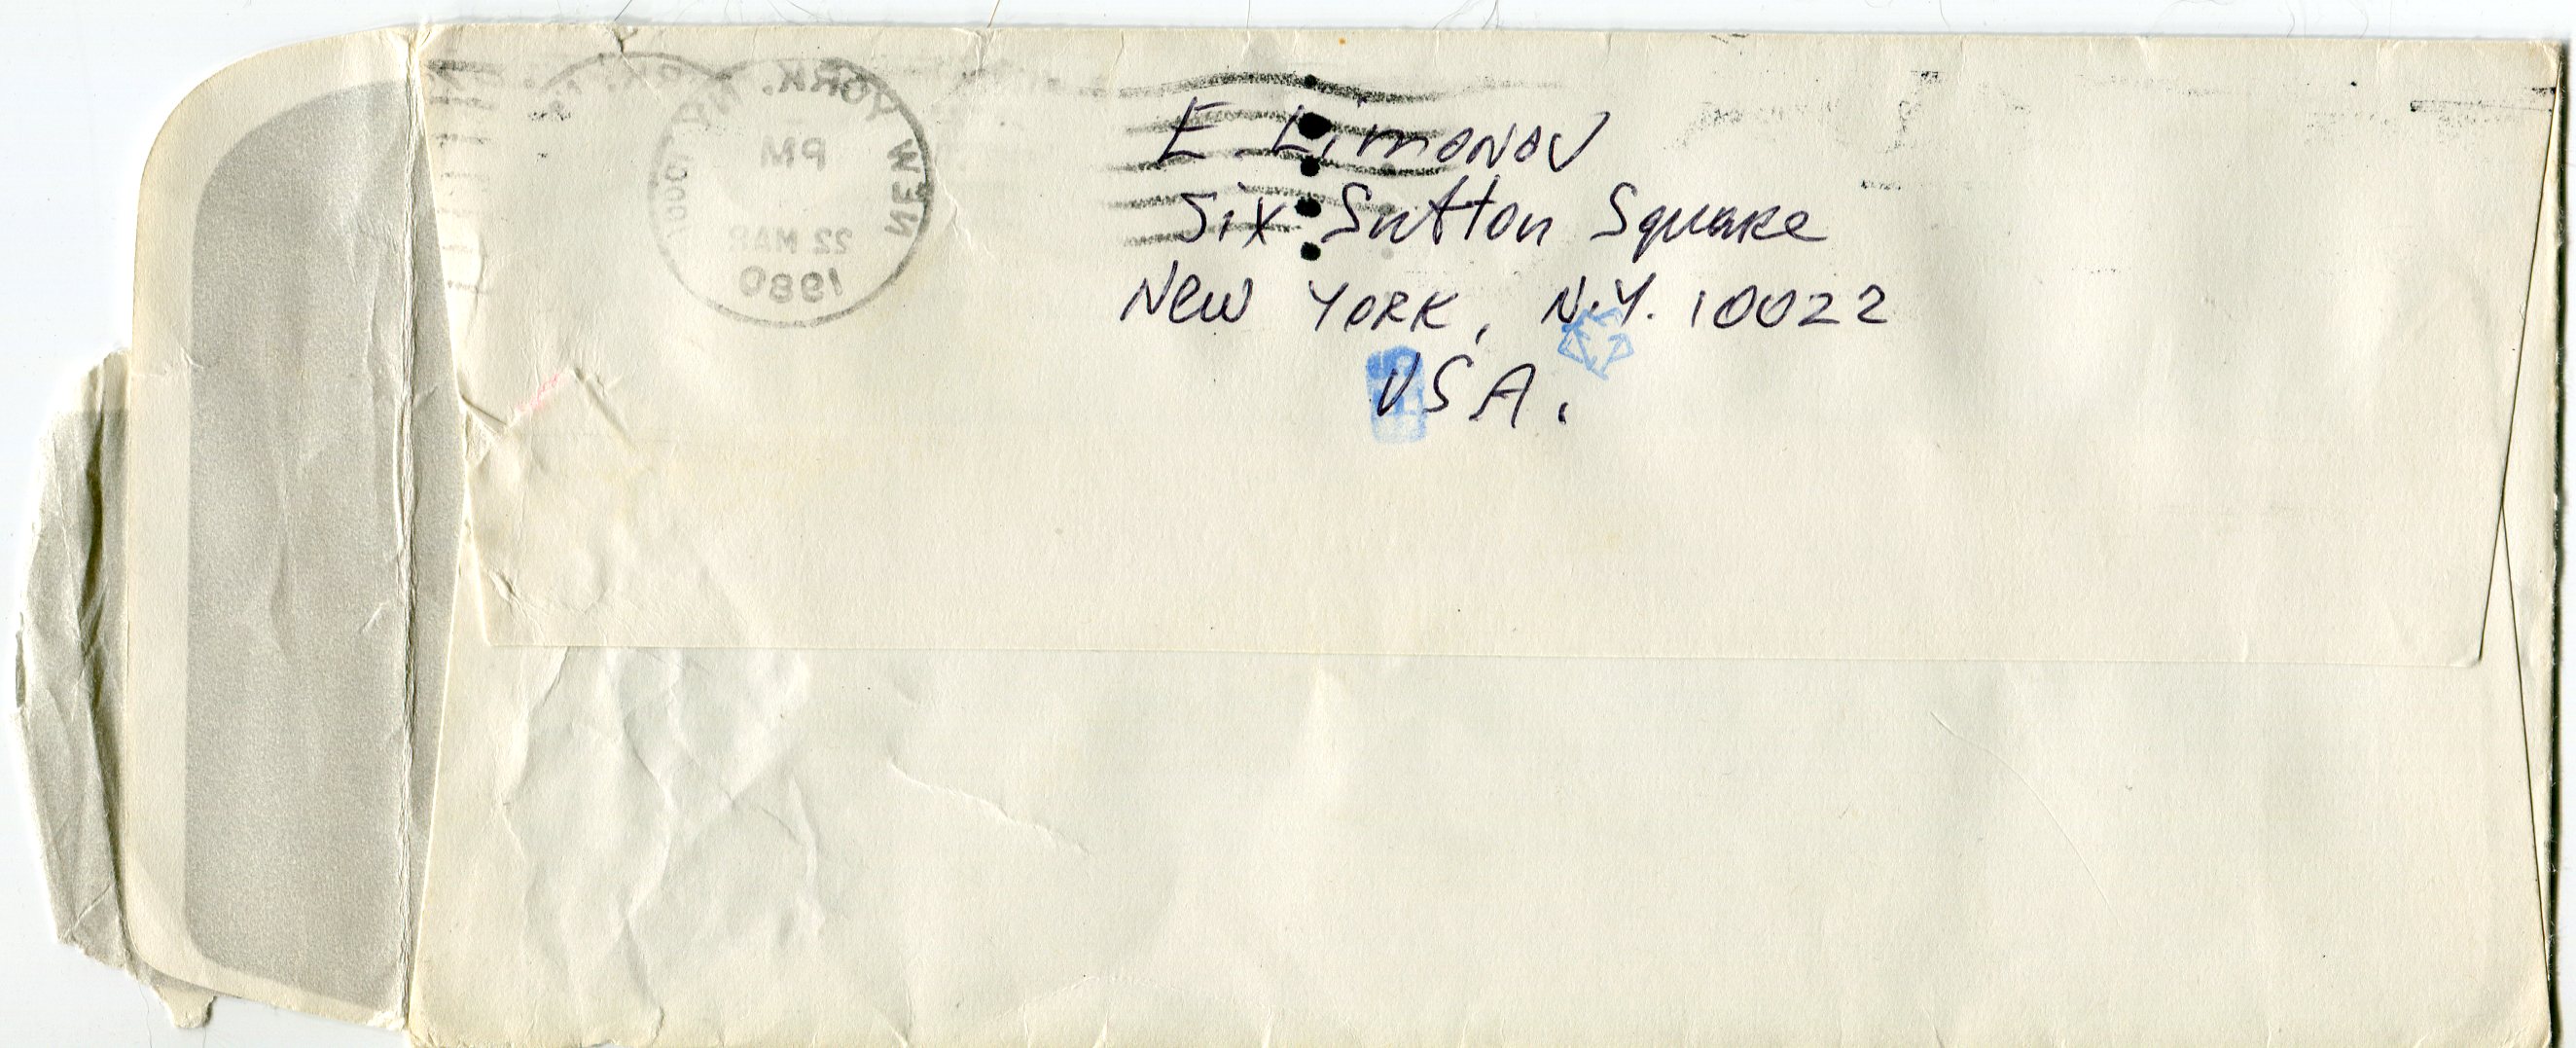 NEW YORK, N.Y.
PM
22 MAR
1980
E. Limonov
Six Sutton Square
New York, N.Y. 10022
USA.